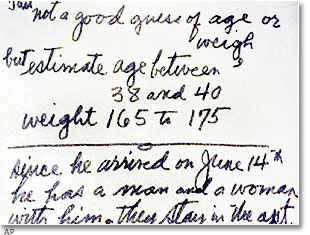 I am not a good guess of age or
weigh
but estimate age between
38 and 40
weight 165 to 175
since he arrived on June 14th
he has a man and a woman
with him. they stay in the apt.
AP